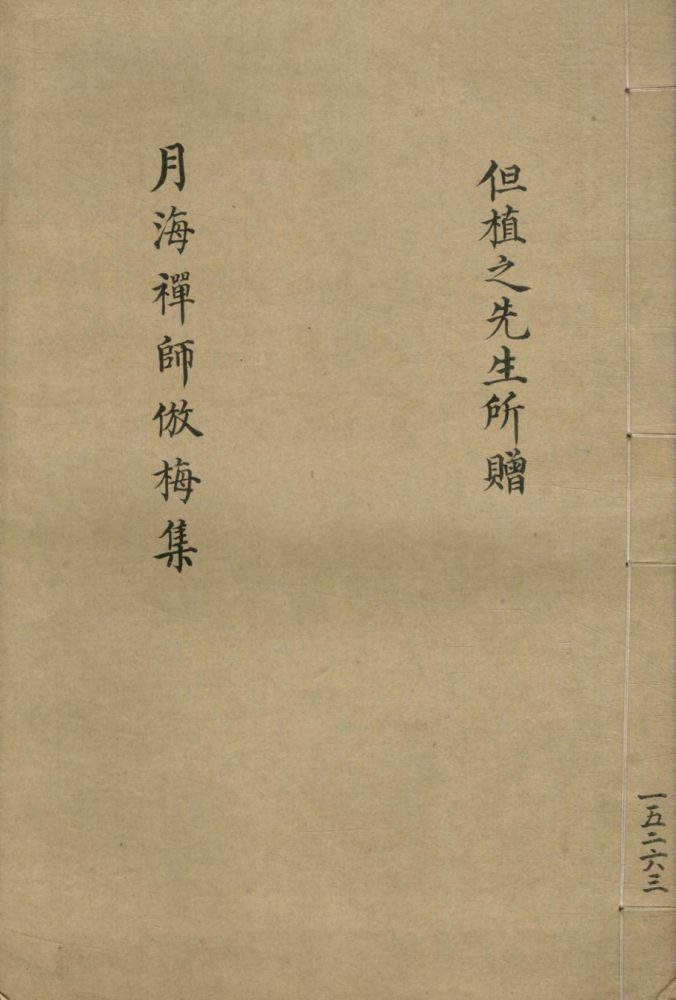 但植之先生所贈
月海禪師倣梅集
一五二六三